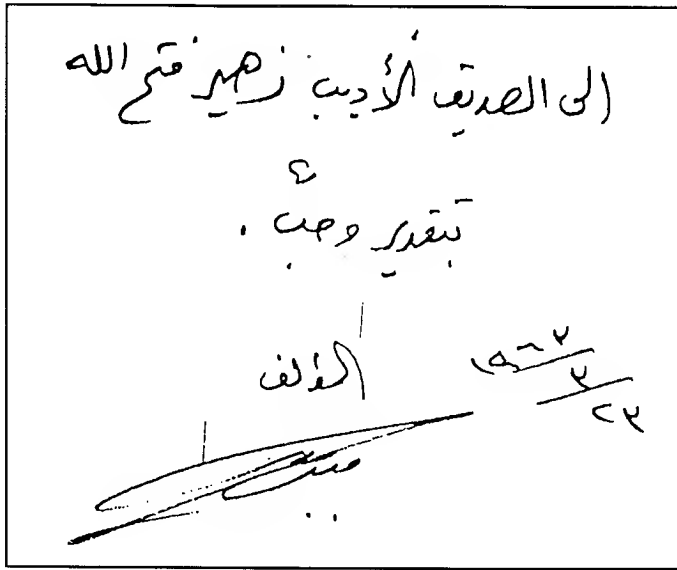 إلى الصديق الأديب زهير فتح الله
بتقدير وحبّ .
المؤلف
٢٣/٣/١٩٦٧